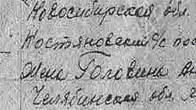 Новосибирская обл
Костяновский с/с пос
Жена Головина
Челябинская обл.